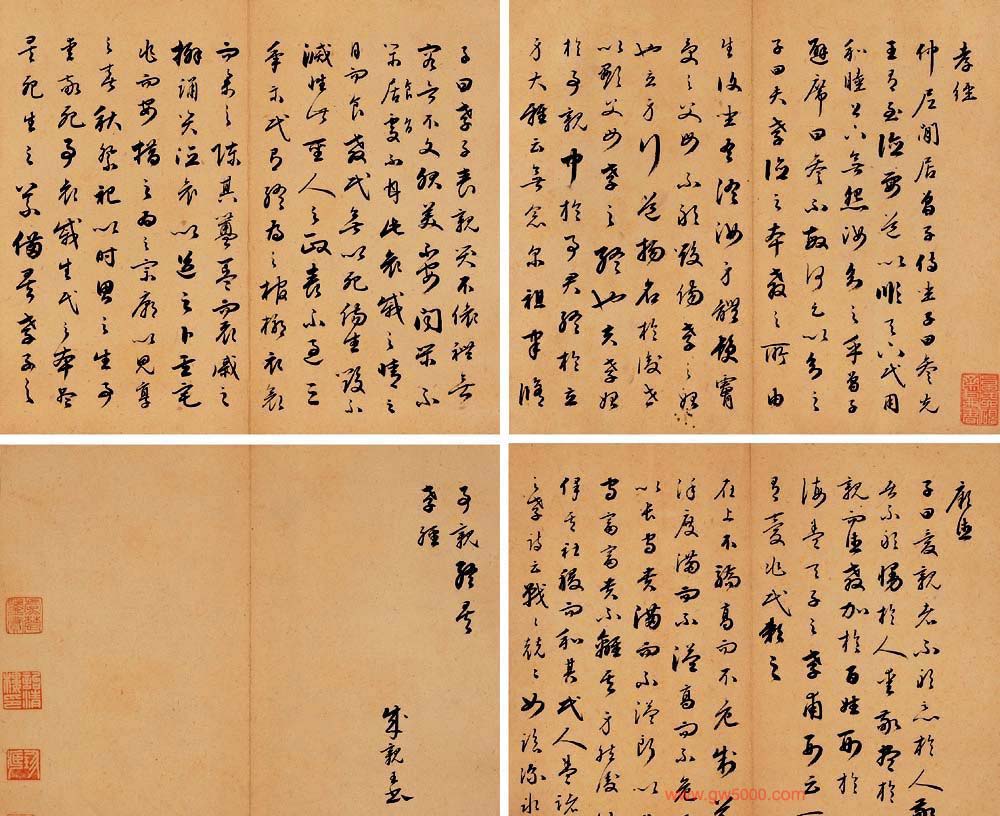 孝經
仲尼閒居曾子侍坐子曰參先
王有至德要道以順天下民用
和睦上下無怨汝知之乎曾子
避席曰參不敏何足以知之
子曰夫孝德之本教之所由
生復坐吾語汝身體髮膚
受之父母不敢毀傷孝之始
也立身行道揚名於後世
以顯父母孝之終也夫孝始
於事親中於事君終於立
身大雅云無念爾祖聿脩
子曰孝子喪親哭不偯禮無
容言不文服美不安聞樂不
樂食旨不甘此哀戚之情三
日而食教民無以死傷生毀不
滅性此聖人之政喪不過三
年示民有終為之棺槨衣衾
而舉之陳其簠簋而哀慼之
擗踊哭泣哀以送之卜其宅
兆而安措之為之宗廟以鬼享
之春秋祭祀以時思之生事
愛敬死事哀戚生民之本盡
矣死生之義備矣孝子之
子曰愛親者不敢惡於人敬
者不敢慢於人愛敬盡於
親而德教加於百姓刑於
海蓋天子之孝甫刑云一
有慶兆民賴之
在上不驕高而不危制節
度滿而不溢高而不危
以長守貴滿而不溢所以
守富富貴不離其身然後
保其社稷而和其民人蓋諸
之孝詩云戰戰兢兢如臨深
事親終矣
孝經
成親王書
www.gw5000.com